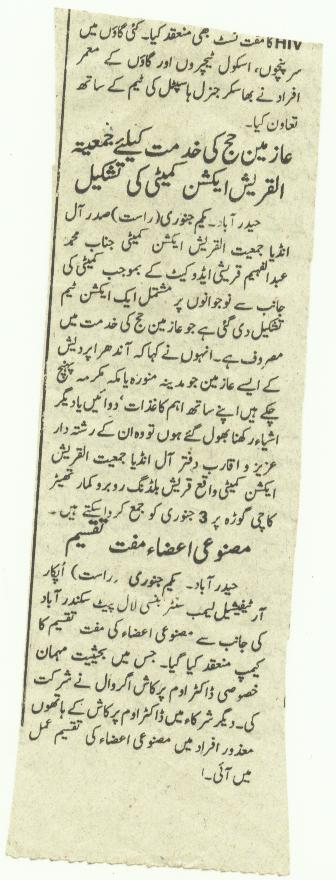 HIV کا مفت ٹسٹ بھی منعقد کیا۔ کئی گاؤں میں
سرپنچوں، اسکول ٹیچروں اور گاؤں کے معمر
افراد نے بھاسکر جنرل ہاسپٹل کی ٹیم کے ساتھ
تعاون کیا۔
عازمین حج کی خدمت کیلئے جمعیتہ
القریش ایکشن کمیٹی کی تشکیل
حیدرآباد۔ یکم جنوری (راست) صدر آل
انڈیا جمعیت القریش ایکشن کمیٹی جناب محمد
عبدالفہیم قریشی ایڈوکیٹ کے بموجب کمیٹی کی
جانب سے نوجوانوں پر مشتمل ایک ایکشن ٹیم
تشکیل دی گئی ہے جو عازمین حج کی خدمت میں
مصروف ہے۔ انہوں نے کہا کہ آندھرا پردیش
کے ایسے عازمین جو مدینہ منورہ یا مکہ مکرمہ پہنچ
چکے ہیں اپنے ساتھ اہم کاغذات، دوائیں یا دیگر
اشیاء رکھنا بھول گئے ہوں تو وہ ان کے رشتہ دار
عزیز و اقارب دفتر آل انڈیا جمعیت القریش
ایکشن کمیٹی واقع قریش بلڈنگ روبرو کمار تھیٹر
کاچی گوڑہ پر 3 جنوری کو جمع کرواسکتے ہیں۔
مصنوعی اعضاء مفت تقسیم
حیدرآباد۔ یکم جنوری (راست) اُپکار
آرٹیفیشیل لیمب سنٹر بنسی لال پیٹ سکندرآباد
کی جانب سے مصنوعی اعضاء کی مفت تقسیم کا
کیمپ منعقد کیا گیا۔ جس میں بحیثیت مہمان
خصوصی ڈاکٹر اوم پرکاش اگروال نے شرکت
کی۔ دیگر شرکاء میں ڈاکٹر اوم پرکاش کے ہاتھوں
معذور افراد میں مصنوعی اعضاء کی تقسیم عمل
میں آئی۔